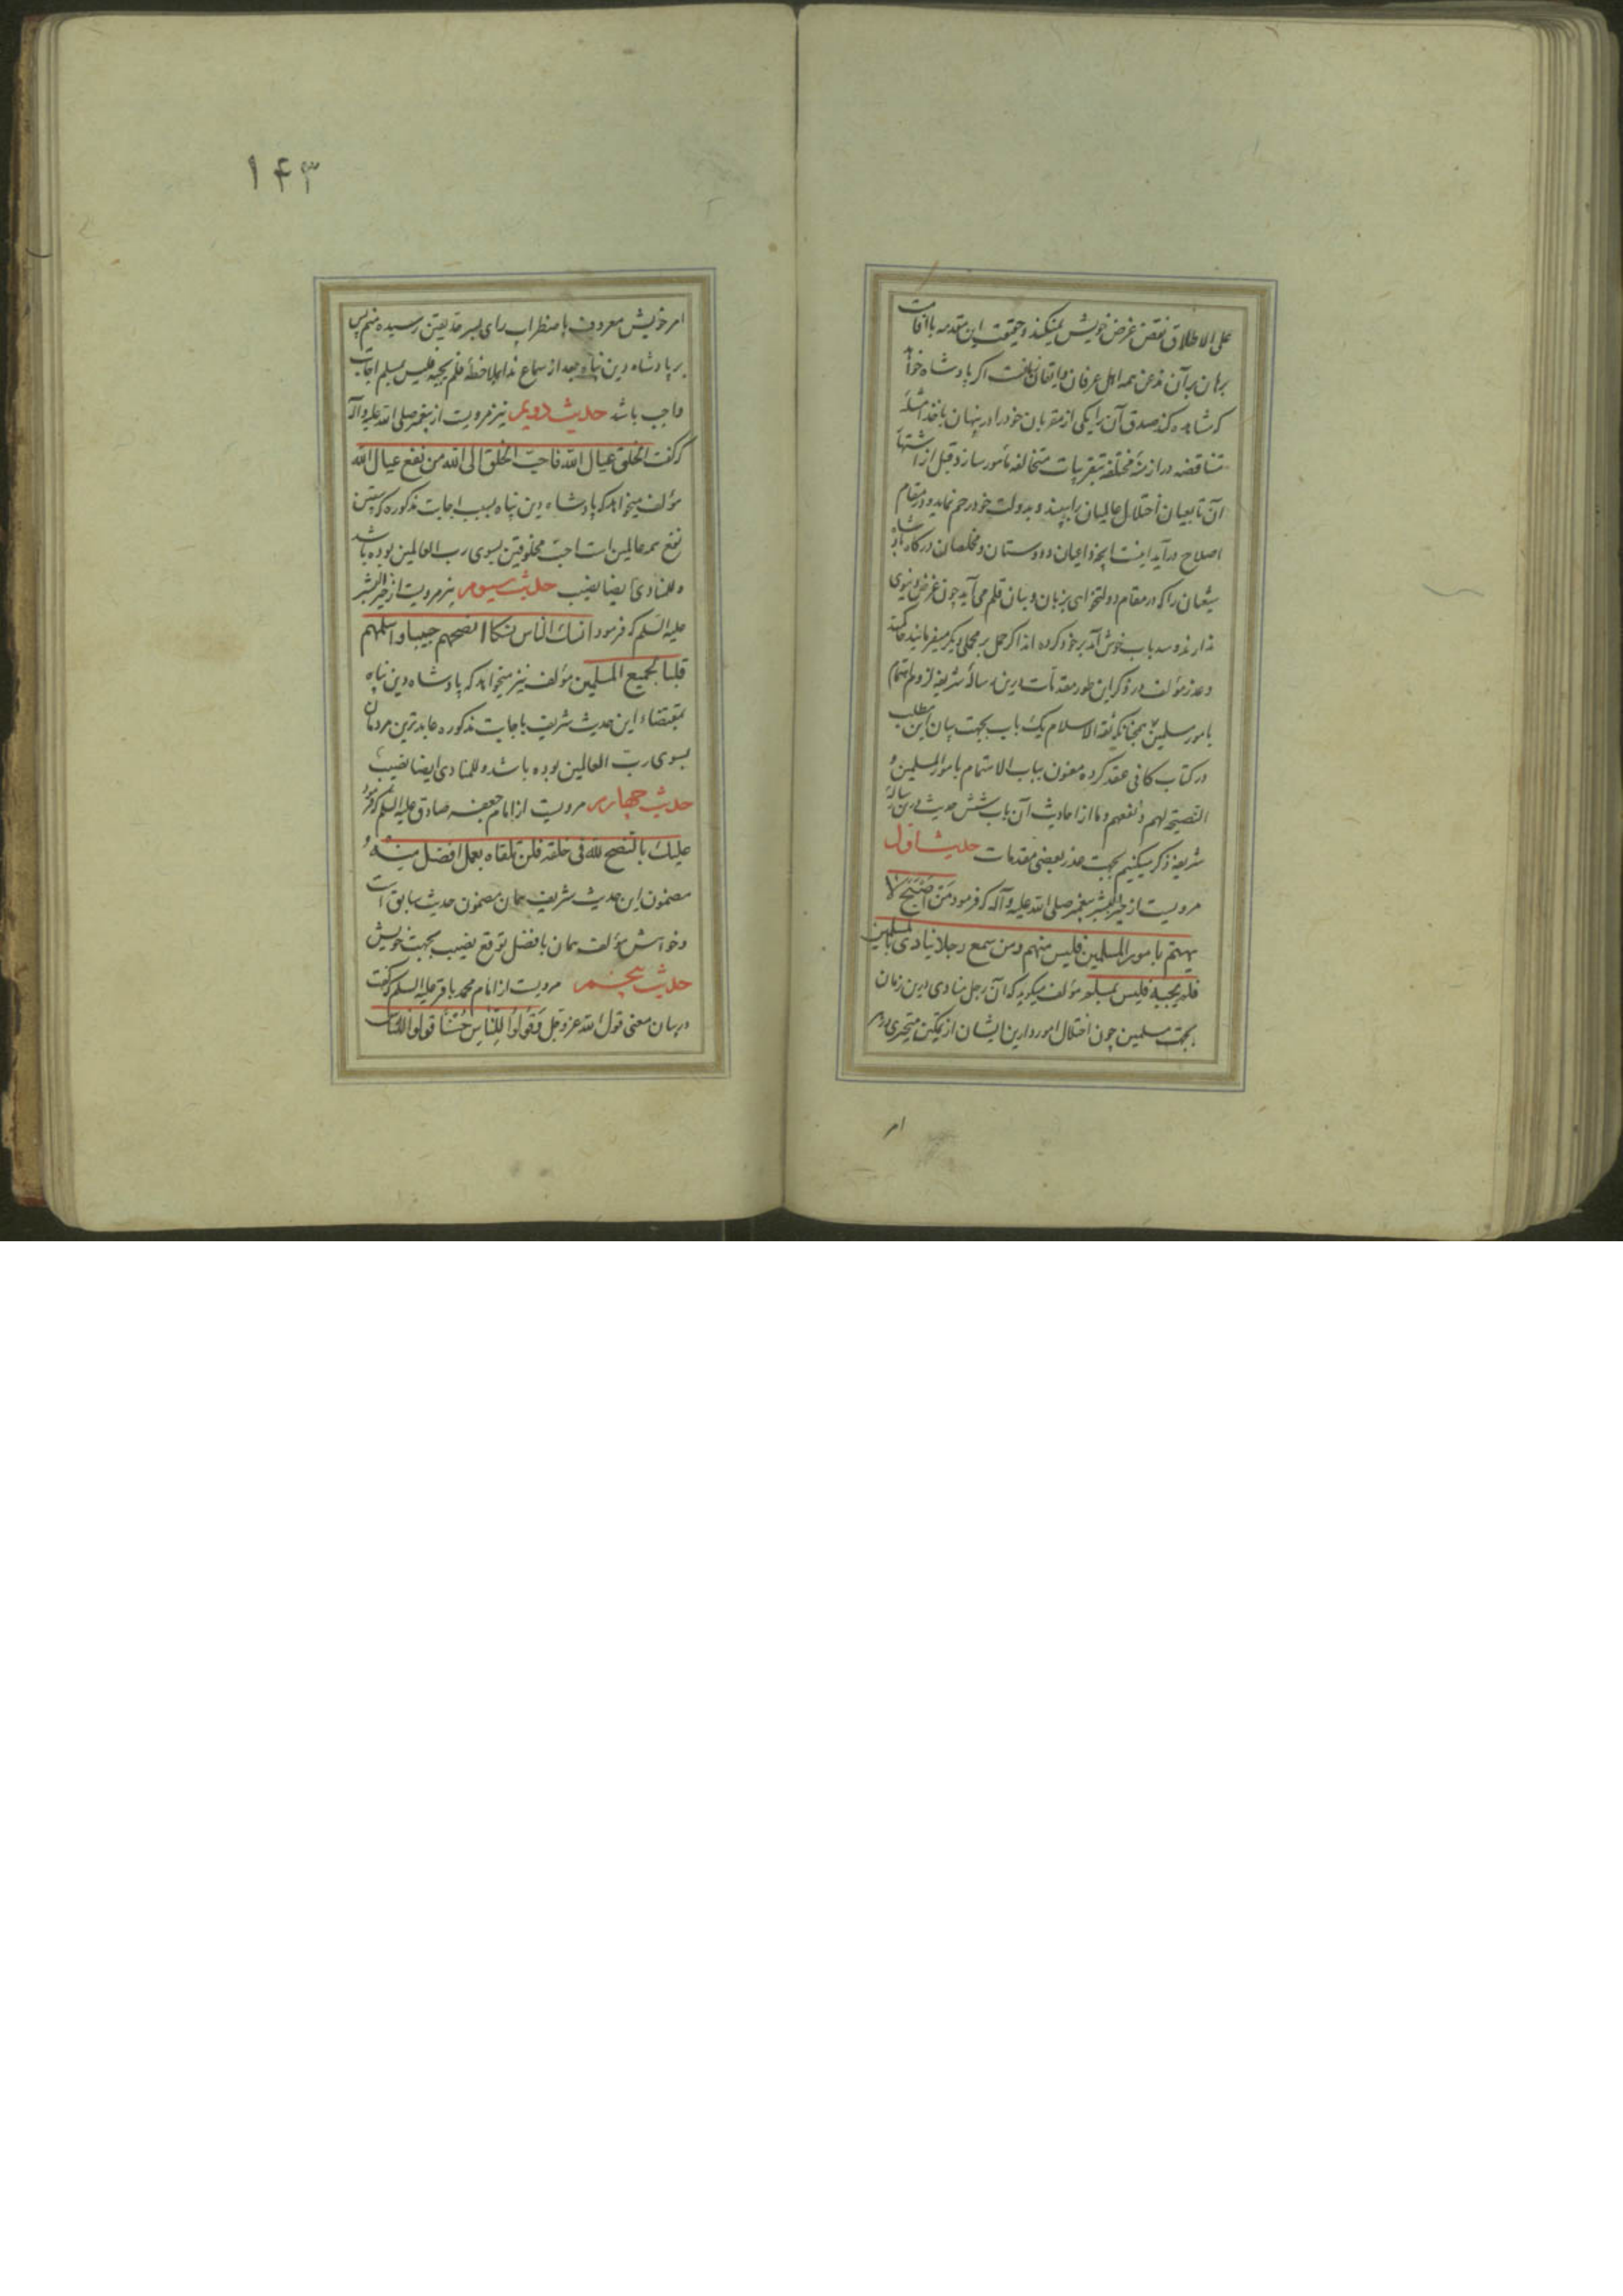 علی الاطلاق نقض غرض خویش نمیکند و حقیقت این مقدمه با اقامت
برهان بر آن مذعن همه اهل عرفان و ایقان است اگر پادشاه خواهد
که مشاهده کند صدق آن را یکی از مقربان خود را در پنهان باخذ
متناقضه در ازمنهٔ مختلفه بتقریبات متخالفه مأمور سازد و قبل از اشتهار
آن تا بعیان اختلال عالمیان را ببیند و بدولت خود رحم نماید و در مقام
اصلاح درآید اینست آنچه داعیان و دوستان و مخلصان درگاه پادشاه
شیعیان را که در مقام دولتخواهی بزبان و بیان قلم می آید چون غرض دنیوی
ندارند و سد باب خوش آمد بر خود کرده اند اگر حمل بر محملی دیگر میفرمایند حاکمند
و عذر مؤلف در ذکر این طور مقدمات درین رسالهٔ شریفه لزوم اهتمام
بامور مسلمین همچنانکه ثقة الاسلام یک باب بجهت بیان این مطلب
در کتاب کافی عقد کرده معنون بباب الاهتمام بامور المسلمین و
النصیحة لهم و نفعهم و ما از احادیث آن باب شش حدیث درین رسالهٔ
شریفه ذکر میکنیم بجهت عذر بعضی مقدمات حدیث اول
مرویست از خیر البشر پیغمبر صلی الله علیه و آله که فرمود من اصبح لا
یهتم بامور المسلمین فلیس منهم و من سمع رجلا ینادی یا للمسلمین
فلم یجبه فلیس بمسلم مؤلف میگوید که آن رجل منادی درین زمان
بجهت مسلمین چون اختلال امور دارین ایشان از تمکین متحیری در هر
امر
۱۴۳
امر خویش معروف باضطراب رای بسرحد یقین رسیده منم پس
بر پادشاه دین پناه بعد از سماع ندا بملاحظهٔ فلم یجبه فلیس بمسلم اجابت
واجب باشد حدیث دویم نیز مرویست از پیغمبر صلی الله علیه و آله
که گفت الخلق عیال الله فاحب الخلق الی الله من نفع عیال الله
مؤلف میخواهد که پادشاه دین پناه بسبب اجابت مذکوره که متضمن
نفع همه عالمین است احب مخلوقین بسوی رب العالمین بوده باشد
و للمنادی ایضا نصیب حدیث سیوم نیز مرویست از خیر البشر
علیه السلم که فرمود انسک الناس نسکا انصحهم جیبا و اسلمهم
قلبا لجمیع المسلمین مؤلف نیز میخواهد که پادشاه دین پناه
بمقتضاء این حدیث شریف باجابت مذکوره عابدترین مردمان
بسوی رب العالمین بوده باشد و للمنادی ایضا نصیب
حدیث چهارم مرویست از امام جعفر صادق علیه السلم که فرمود
علیک بالنصح لله فی خلقه فلن تلقاه بعمل افضل منه و
مضمون این حدیث شریف همان مضمون حدیث سابق است
و خواهش مؤلف همان بافضل توقع نصیب بجهت خویش
حدیث پنجم مرویست از امام محمد باقر علیه السلم که گفت
در بیان معنی قول الله عز و جل وقولوا للناس حسنا قولوا للناس